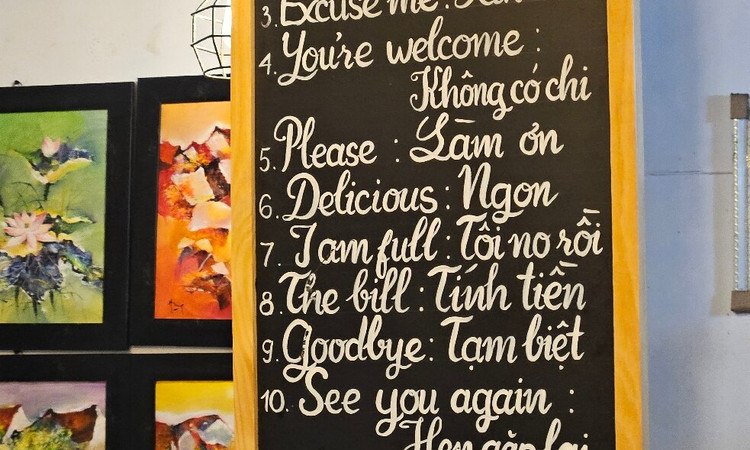 3. Excuse me :
4. You're welcome :
Không có chi
5. Please : Làm ơn
6. Delicious : Ngon
7. I am full : Tôi no rồi
8. The bill : Tính tiền
9. Goodbye : Tạm biệt
10. See you again :
Hẹn gặp lại